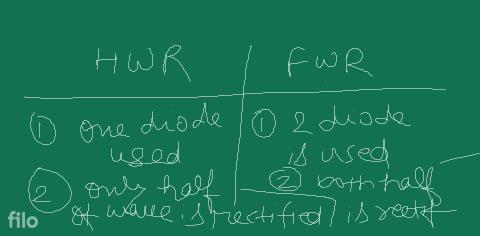 HWR FWR
① one diode
used
② only half
of wave is rectified
① 2 diode
is used
② both half
is rectf
filo